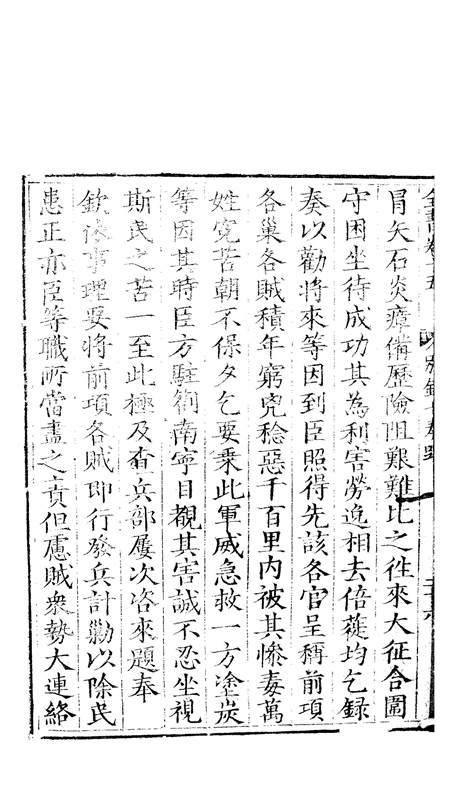 全書卷十五 別錄七奏疏
冒矢石炎瘴備歷險阻艱難比之徃來大征合圖
守困坐待成功其為利害勞逸相去倍蓰均乞録
奏以勸將來等因到臣照得先該各官呈稱前項
各巢各賊積年窮兇稔惡千百里内被其慘毒萬
姓寃苦朝不保夕乞要乘此軍威急救一方塗炭
等因其時臣方駐劄南寧目覩其害誠不忍坐視
斯民之苦一至此極及查兵部屢次咨來題奉
欽依事理要將前項各賊即行發兵計勦以除民
患正亦臣等職所當盡之責但慮賊衆勢大連絡